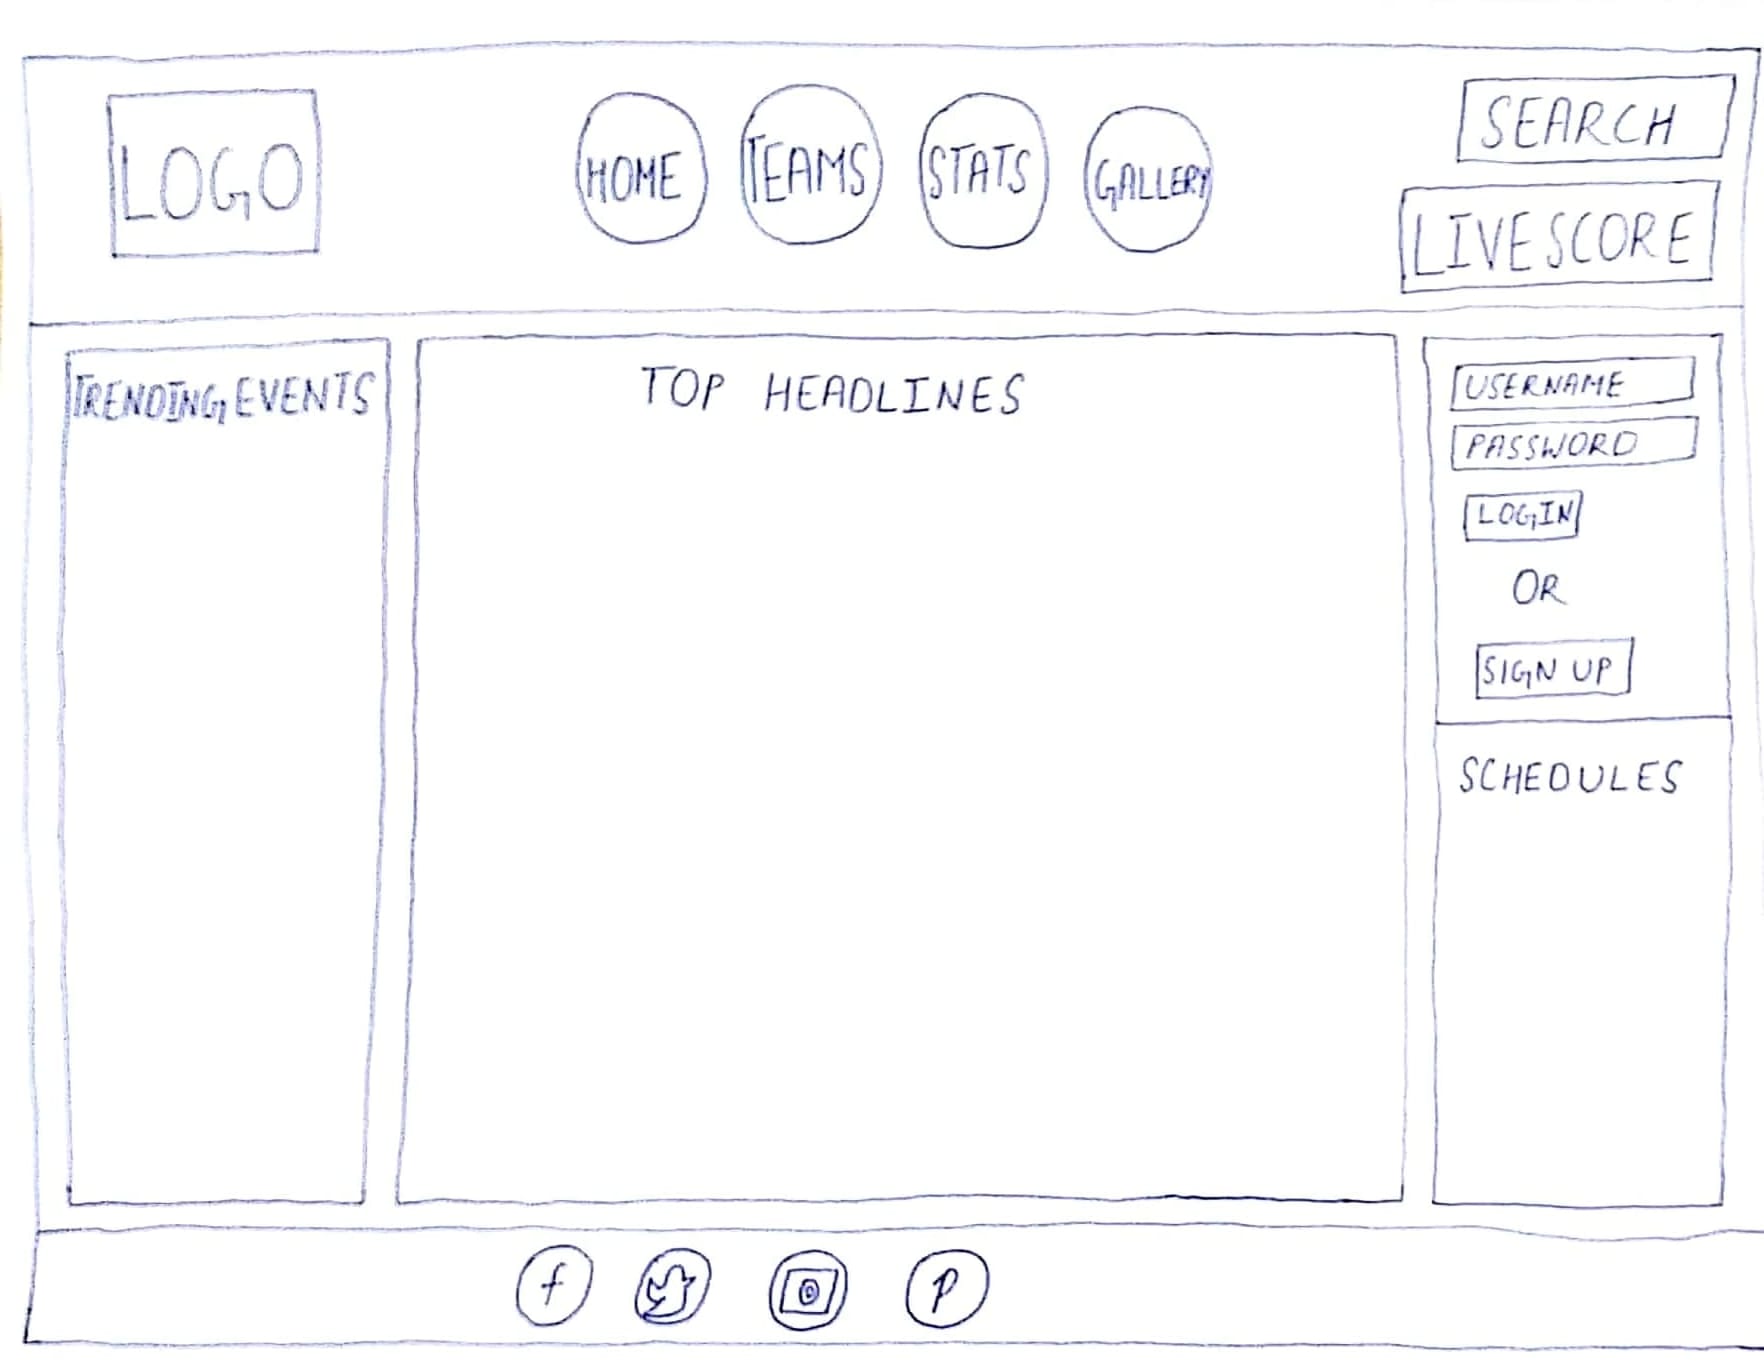 LOGO
HOME
TEAMS
STATS
GALLERY
SEARCH
LIVE SCORE
TRENDING EVENTS
TOP HEADLINES
USERNAME
PASSWORD
LOGIN
OR
SIGN UP
SCHEDULES
f
p